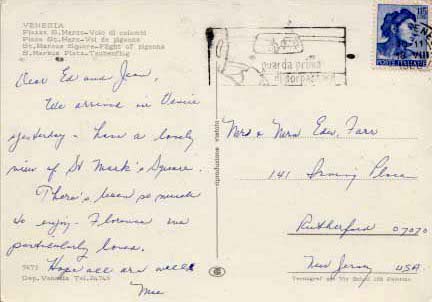 VENEZIA
Piazza S. Marco - Volo di colombi
Place St. Marc - Vol de pigeons
St. Marcus Square - Flight of pigeons
S. Markus Platz - Taubenflug
Dear Ed and Jean,
We arrived in Venice
yesterday - have a lovely
view of St Mark's Square.
There's been so much
to enjoy - Florence we
particularly loved.
Hope all are well
7473
Dep. Venezia Tel. 24748
riproduzione vietata
guarda prima
di sorpassare
115
POSTE ITALIANE
Mr & Mrs Edw. Farr
141 Irving Place
Rutherford 07070
New Jersey USA